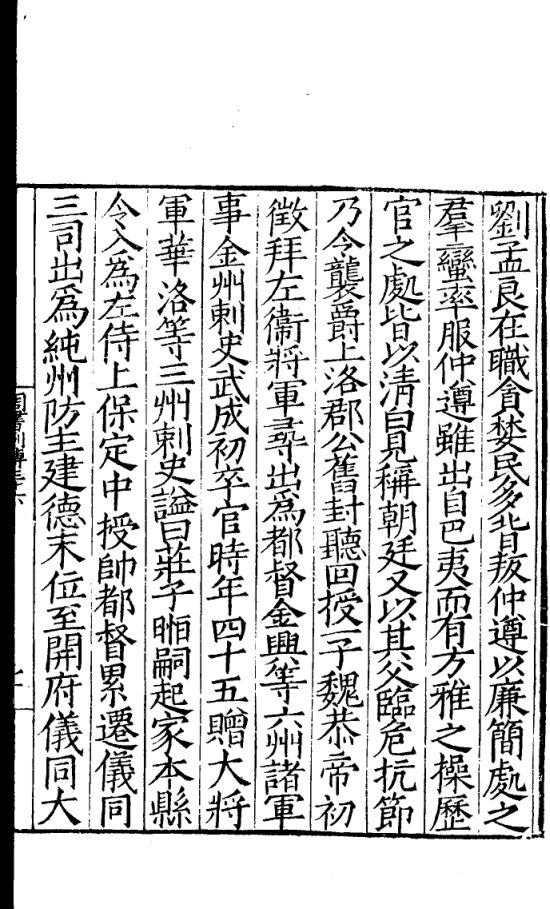 劉孟良在職貪婪民多背叛仲遵以廉簡處之
羣蠻率服仲遵雖出自巴夷而有方雅之操歷
官之處皆以清白見稱朝廷又以其父臨危抗節
乃令襲爵上洛郡公舊封聽回授一子魏恭帝初
徵拜左衞將軍尋出爲都督金興等六州諸軍
事金州刺史武成初卒官時年四十五贈大將
軍華洛等三州刺史謚曰莊子暅嗣起家本縣
令入為左侍上保定中授帥都督累遷儀同
三司出爲純州防主建德末位至開府儀同大
周書列傳三六